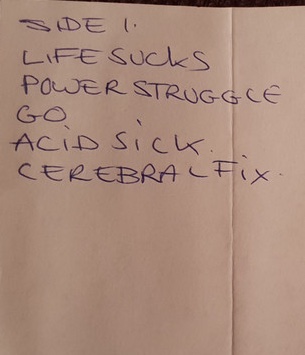 SIDE 1.
LIFE SUCKS
POWER STRUGGLE
GO
ACiD SiCK.
CEREBRAL FiX.